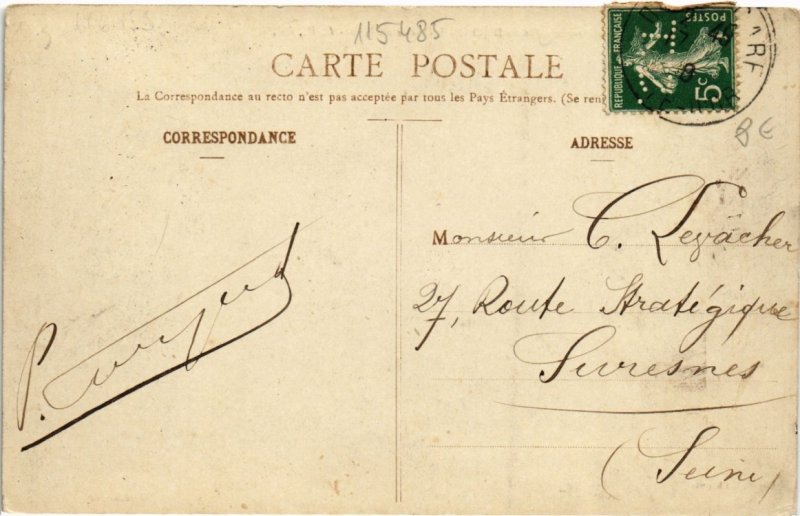 115485
CARTE POSTALE
La Correspondance au recto n'est pas acceptée par tous les Pays Étrangers. (Se ren
CORRESPONDANCE
ADRESSE
REPUBLIQUE FRANÇAISE
POSTES
5c
8€
Monsieur C. Levacher
27, Route Stratégique
Suresnes
(Seine)
P.